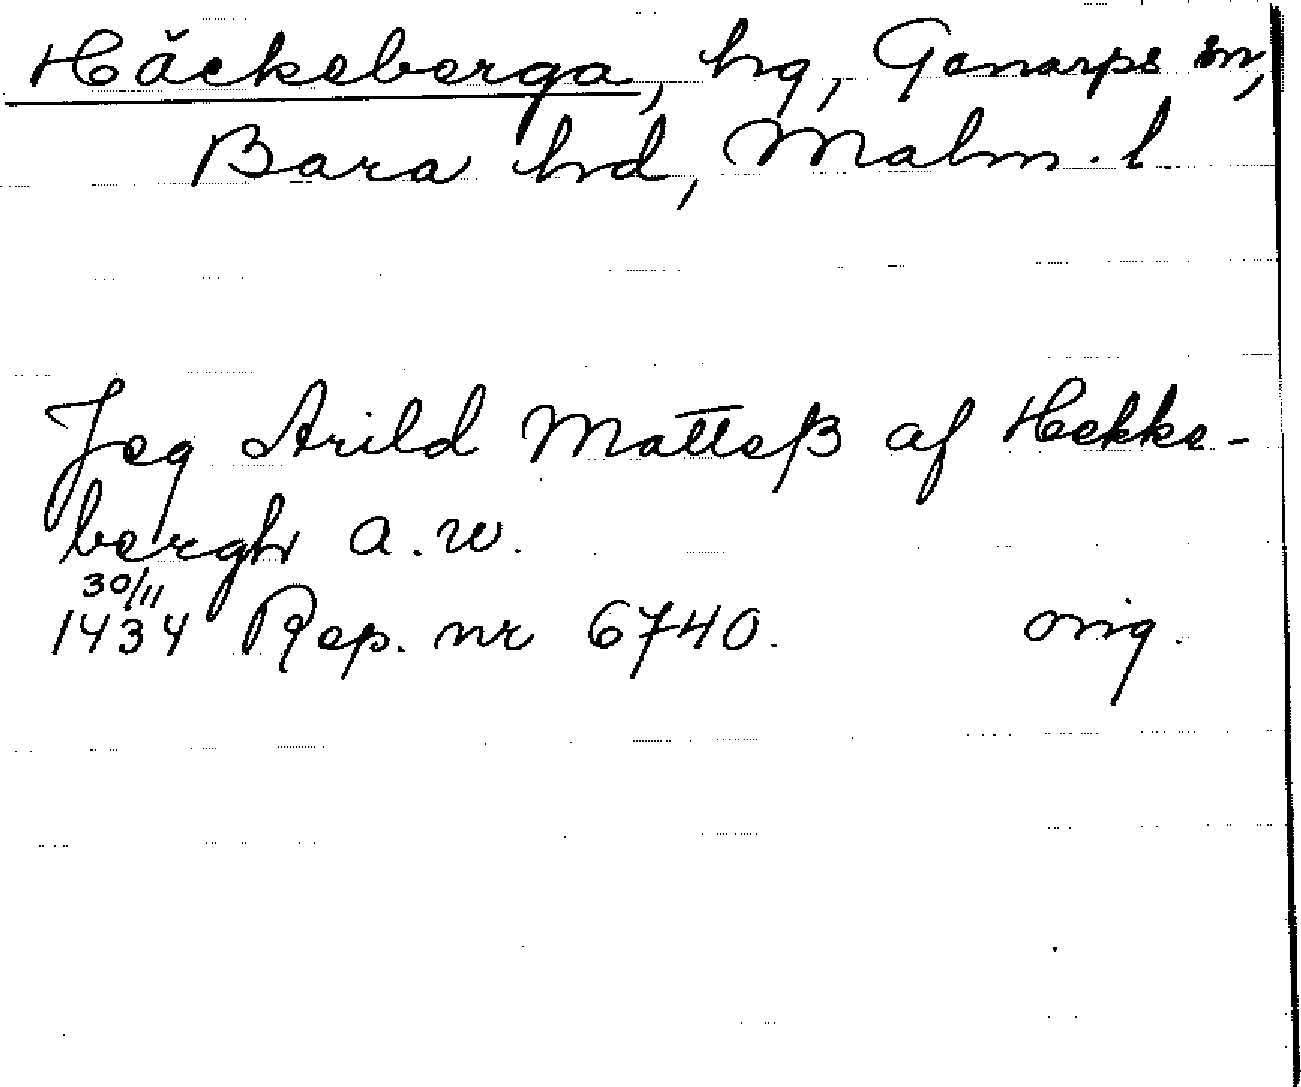 Häckeberga, hg, Genarps sn,
Bara hd, Malm. l
Jeg Arild Matteß af Hekke-
bergh a.w.
30/11
1434 Rep. nr 6740. orig.